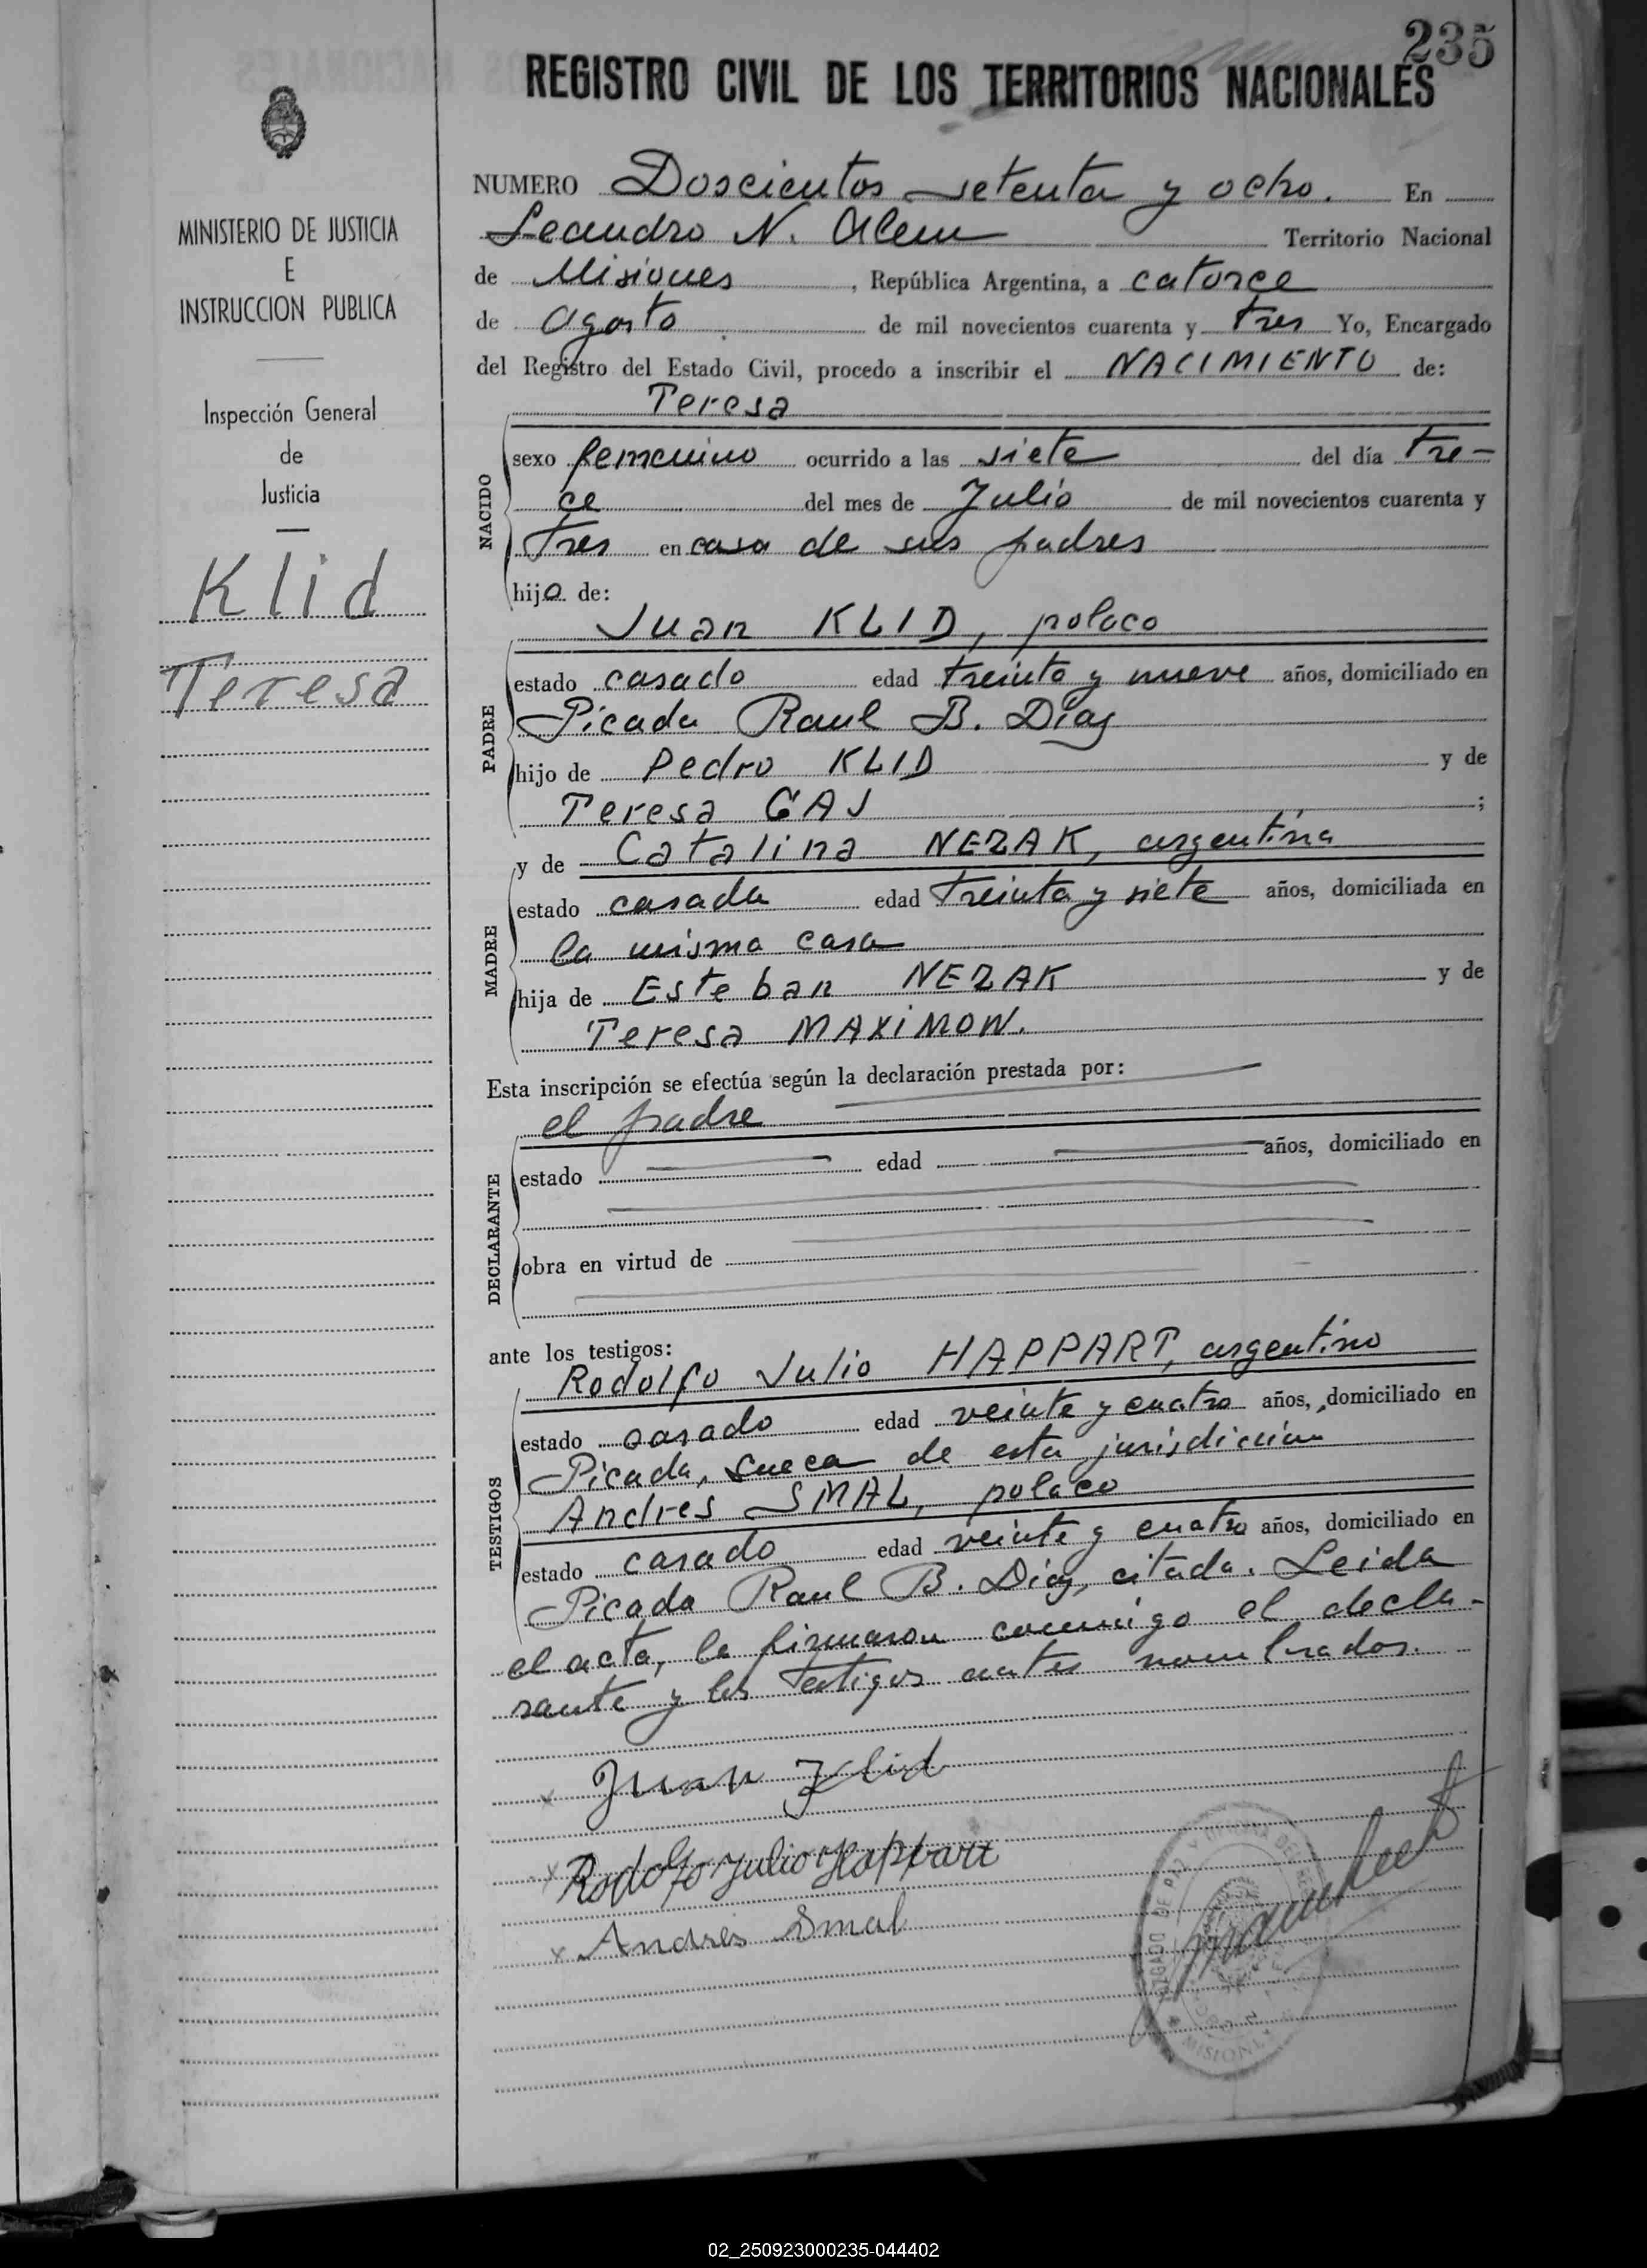 235
REGISTRO CIVIL DE LOS TERRITORIOS NACIONALES
MINISTERIO DE JUSTICIA
E
INSTRUCCION PUBLICA
Inspección General
de
Justicia
Klid
Teresa
NUMERO Doscientos setenta y ocho. En
Leandro N. Alem Territorio Nacional
de Misiones, República Argentina, a catorce
de Agosto de mil novecientos cuarenta y tres Yo, Encargado
del Registro del Estado Civil, procedo a inscribir el NACIMIENTO de:
Teresa
NACIDO
sexo femenino ocurrido a las siete del día tre-
ce del mes de Julio de mil novecientos cuarenta y
tres en casa de sus padres
hijo de:
Juan KLID, polaco
PADRE
estado casado edad treinta y nueve años, domiciliado en
Picada Raul B. Díaz
hijo de Pedro KLID y de
Teresa GAJ ;
y de Catalina NEZAK, argentina
MADRE
estado casada edad treinta y siete años, domiciliada en
la misma casa
hija de Esteban NEZAK y de
Teresa MAXIMOW.
Esta inscripción se efectúa según la declaración prestada por:
el padre
DECLARANTE
estado edad años, domiciliado en
obra en virtud de
ante los testigos:
Rodolfo Julio HAPPART, argentino
TESTIGOS
estado casado edad veinte y cuatro años, domiciliado en
Picada, sueca de esta jurisdicción
Andres SMAL, polaco
estado casado edad veinte y cuatro años, domiciliado en
Picada Raul B. Díaz, citada. Leida
el acta, la firmaron conmigo el decla-
rante y los testigos antes nombrados.
x Juan Klid
x Rodolfo Julio Happart
x Andrés Smal
JUZGADO DE PAZ Y OFICINA DEL
MISIONES
02_250923000235-044402